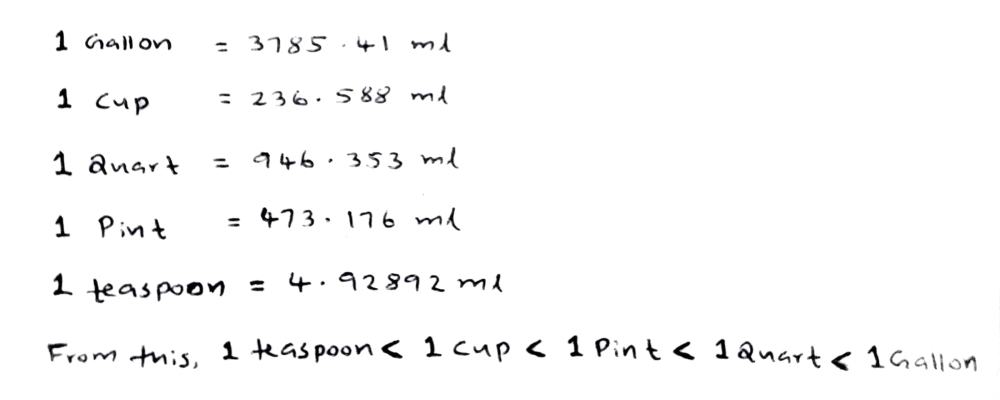 1 Gallon = 3785.41 ml
1 Cup = 236.588 ml
1 Quart = 946.353 ml
1 Pint = 473.176 ml
1 teaspoon = 4.92892 ml
From this, 1 teaspoon < 1 Cup < 1 Pint < 1 Quart < 1 Gallon